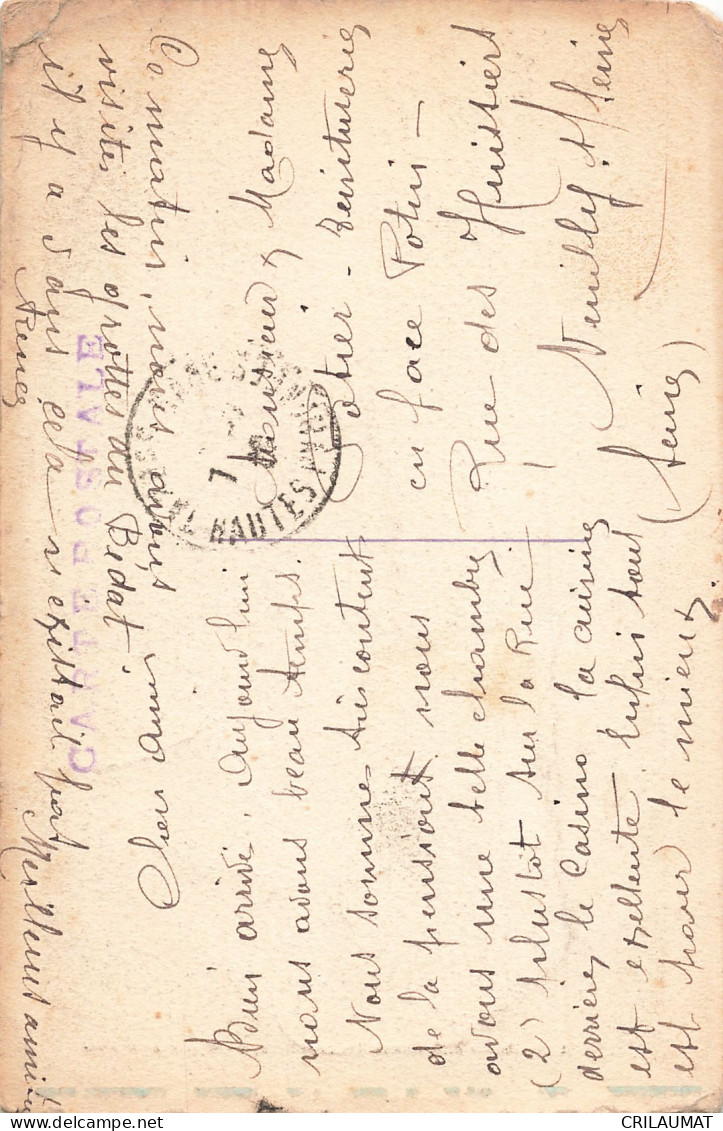 CARTE POSTALE
Chers amis
Bien arrivé. Aujourd'hui
nous avons beau temps.
Nous sommes très content
de la pension nous
avons une belle chambre
(2) plustôt sur la Rue
derrière le Casino la cuisine
est exellente enfin tout
est pour le mieux.
Ce matin, nous avons
visités les grottes du Bédat
il y a 5 ans cela n'existait pas
Meilleurs amitiés
Monsieur & Madame
Teinturerie
en face Potin -
Rue des Huissiers
Neuilly s/ Seine
(Seine)
7
HAUTES PYRÉNÉES
CRILAUMAT